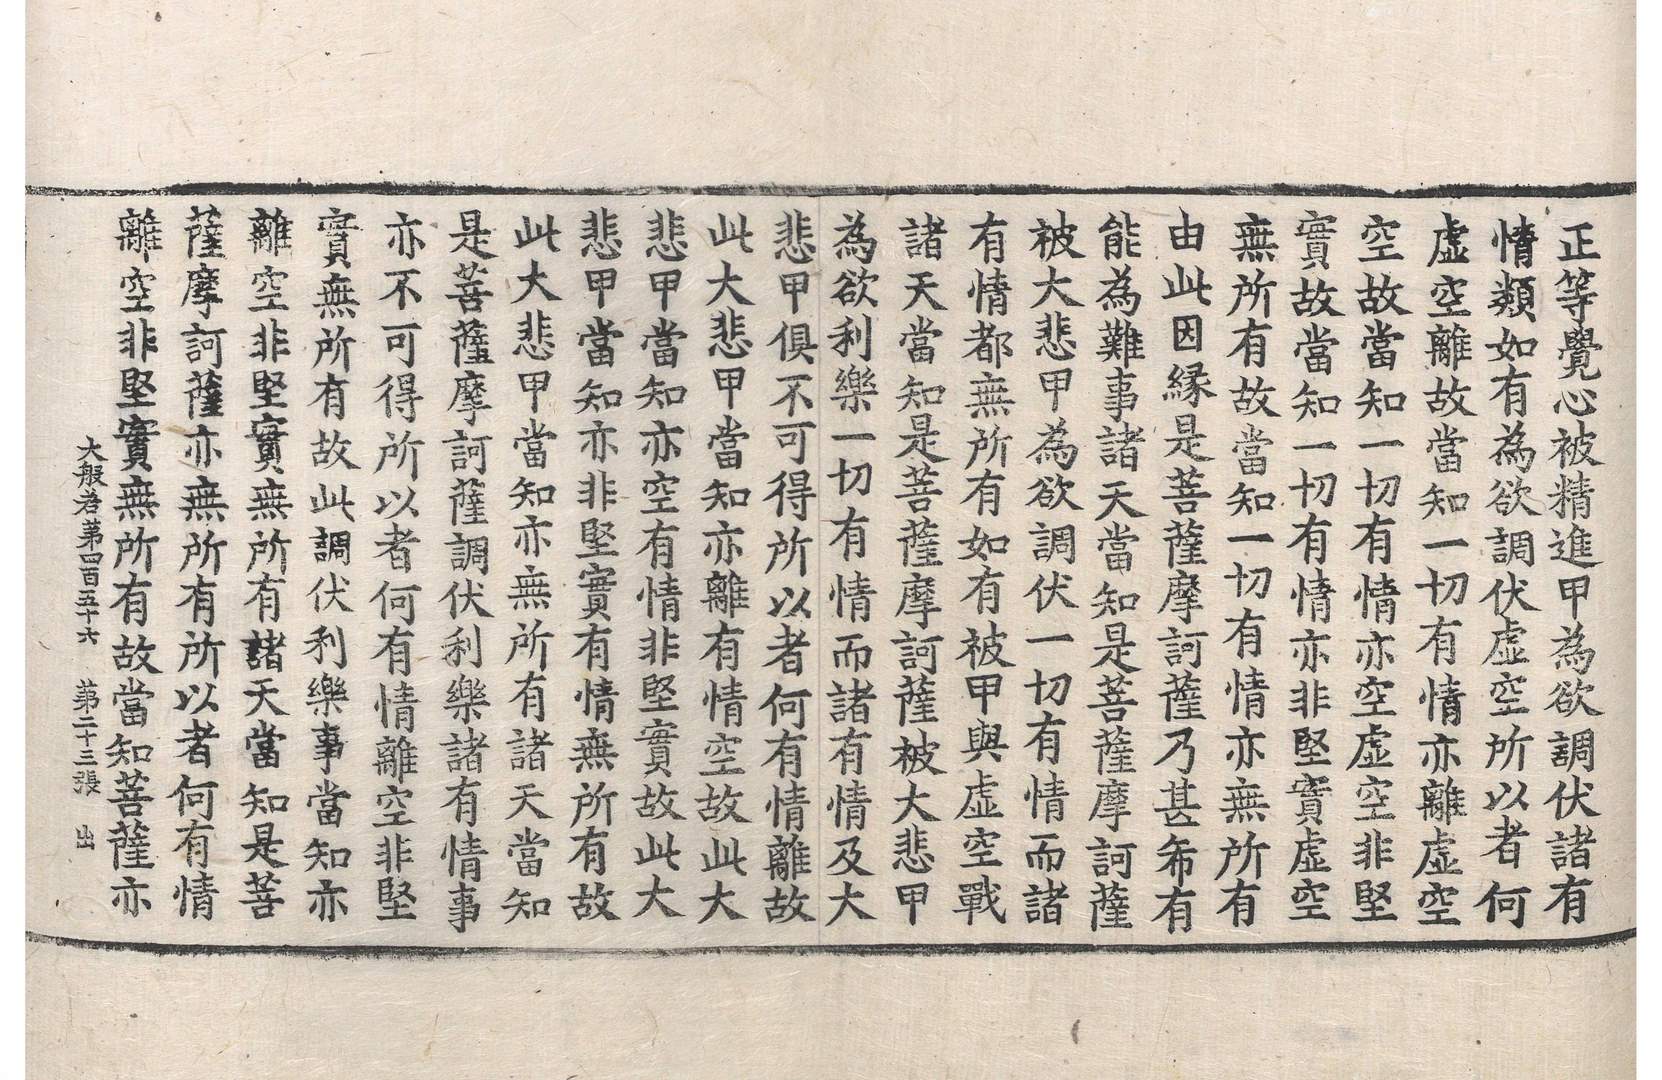 正等覺心被精進甲為欲調伏諸有
情類如有為欲調伏虛空所以者何
虛空離故當知一切有情亦離虛空
空故當知一切有情亦空虛空非堅
實故當知一切有情亦非堅實虛空
無所有故當知一切有情亦無所有
由此因緣是菩薩摩訶薩乃甚希有
能為難事諸天當知是菩薩摩訶薩
被大悲甲為欲調伏一切有情而諸
有情都無所有如有被甲與虛空戰
諸天當知是菩薩摩訶薩被大悲甲
為欲利樂一切有情而諸有情及大
悲甲俱不可得所以者何有情離故
此大悲甲當知亦離有情空故此大
悲甲當知亦空有情非堅實故此大
悲甲當知亦非堅實有情無所有故
此大悲甲當知亦無所有諸天當知
是菩薩摩訶薩調伏利樂諸有情事
亦不可得所以者何有情離空非堅
實無所有故此調伏利樂事當知亦
離空非堅實無所有諸天當知是菩
薩摩訶薩亦無所有所以者何有情
離空非堅實無所有故當知菩薩亦
大般若第四百五十六 第二十三張 出